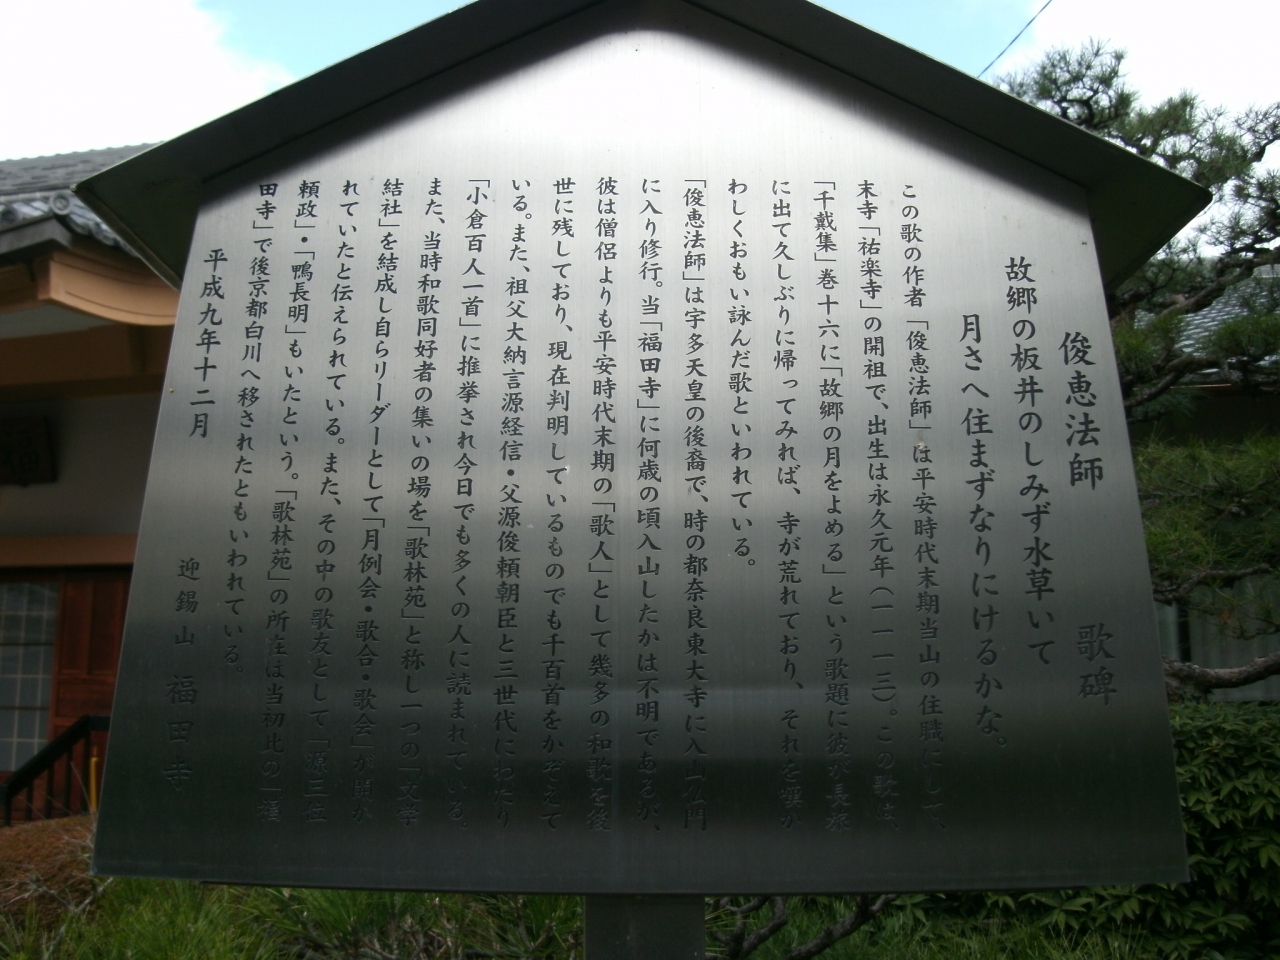 俊恵法師 歌碑
故郷の板井のしみず水草いて
月さへ住まずなりにけるかな。
この歌の作者「俊恵法師」は平安時代末期当山の住職にして、
末寺「祐楽寺」の開祖で、出生は永久元年(一一一三)。この歌は、
「千戴集」巻十六に「故郷の月をよめる」という歌題に彼が長旅
に出て久しぶりに帰ってみれば、寺が荒れており、それを嘆か
わしくおもい詠んだ歌といわれている。
「俊恵法師」は宇多天皇の後裔で、時の都奈良東大寺に入山仏門
に入り修行。当「福田寺」に何歳の頃入山したかは不明であるが、
彼は僧侶よりも平安時代末期の「歌人」として幾多の和歌を後
世に残しており、現在判明しているものでも千百首をかぞえて
いる。また、祖父大納言源経信・父源俊頼朝臣と三世代にわたり
「小倉百人一首」に推挙され今日でも多くの人に読まれている。
また、当時和歌同好者の集いの場を「歌林苑」と称し一つの「文学
結社」を結成し自らリーダーとして「月例会・歌合・歌会」が開か
れていたと伝えられている。また、その中の歌友として「源三位
頼政」・「鴨長明」もいたという。「歌林苑」の所在は当初此の「福
田寺」で後京都白川へ移されたともいわれている。
平成九年十二月
迎錫山 福田寺